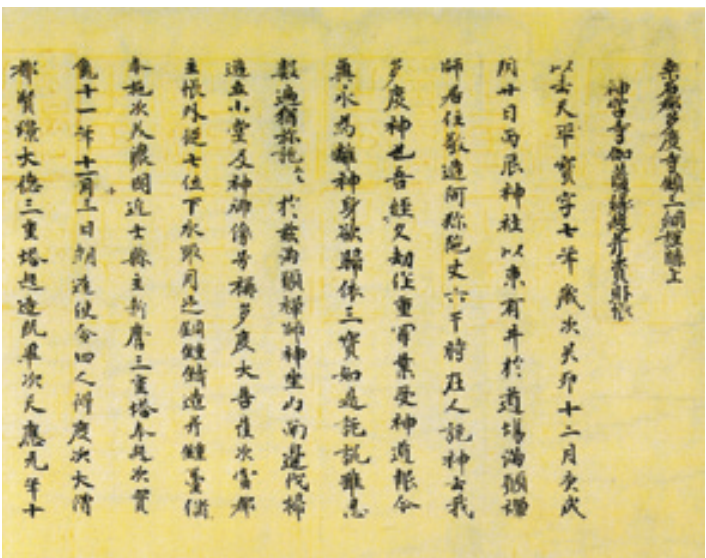 桑名郡多度寺鎮三綱謹牒上
神宮寺伽藍縁起并資財帳
以去天平寶字七年歳次癸卯十二月庚戌
朔廿日丙辰神社以東有井於道場満願禅
師居住敬造阿弥陀丈六于時在人託神云我
多度神也吾經久劫作重罪業受神道報今
冀永為離神身欲歸依三寶如是託訖雖忍
數遍猶弥託云々於茲満願禅師神坐山南邊伐掃
造立小堂及神御像号稱多度大菩薩次當郡
主帳外従七位下水取月足銅鐘鋳造并鐘臺儲
奉施次美濃國近士縣主新麿三重塔奉起次寶
龜十一年十一月三日朝廷使令四人得度次大僧
都賢璟大徳三重塔起造既畢次天應元年十